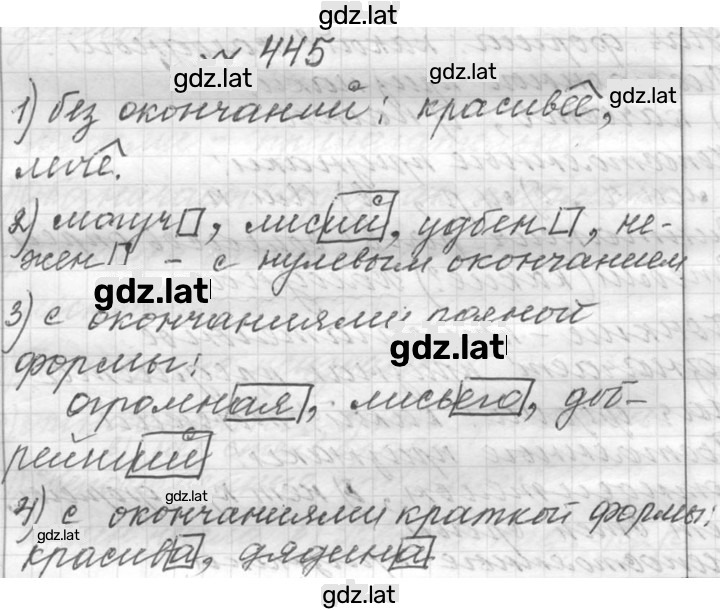 gdz.lat
№ 445
gdz.lat gdz.lat gdz.lat
1) без окончаний: красивее,
легче.
2) могуч, лисий, удобен, не-
жен – с нулевым окончанием
gdz.lat
3) с окончаниями полной
gdz.lat
формы:
огромная, лисьего, доб-
рейший
gdz.lat
4) с окончаниями краткой формы:
gdz.lat
красива, дядина
gdz.lat